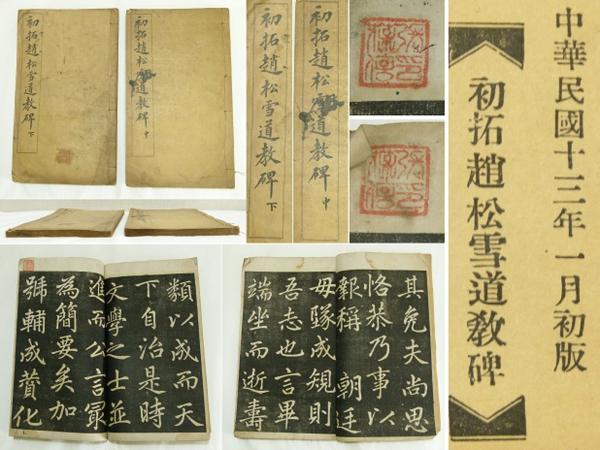 初拓趙松雪道教碑 下
初拓趙松雪道教碑 中
初拓趙松雪道教碑 下
初拓趙松雪道教碑 中
中華民國十三年一月初版
初拓趙松雪道教碑
類以成而天
下自治是時
文學之士並
進而公言最
為簡要矣加
號輔成贊化
其免夫尚思
恪恭乃事以
報稱 朝廷
毋墜成規則
吾志也言畢
端坐而逝壽